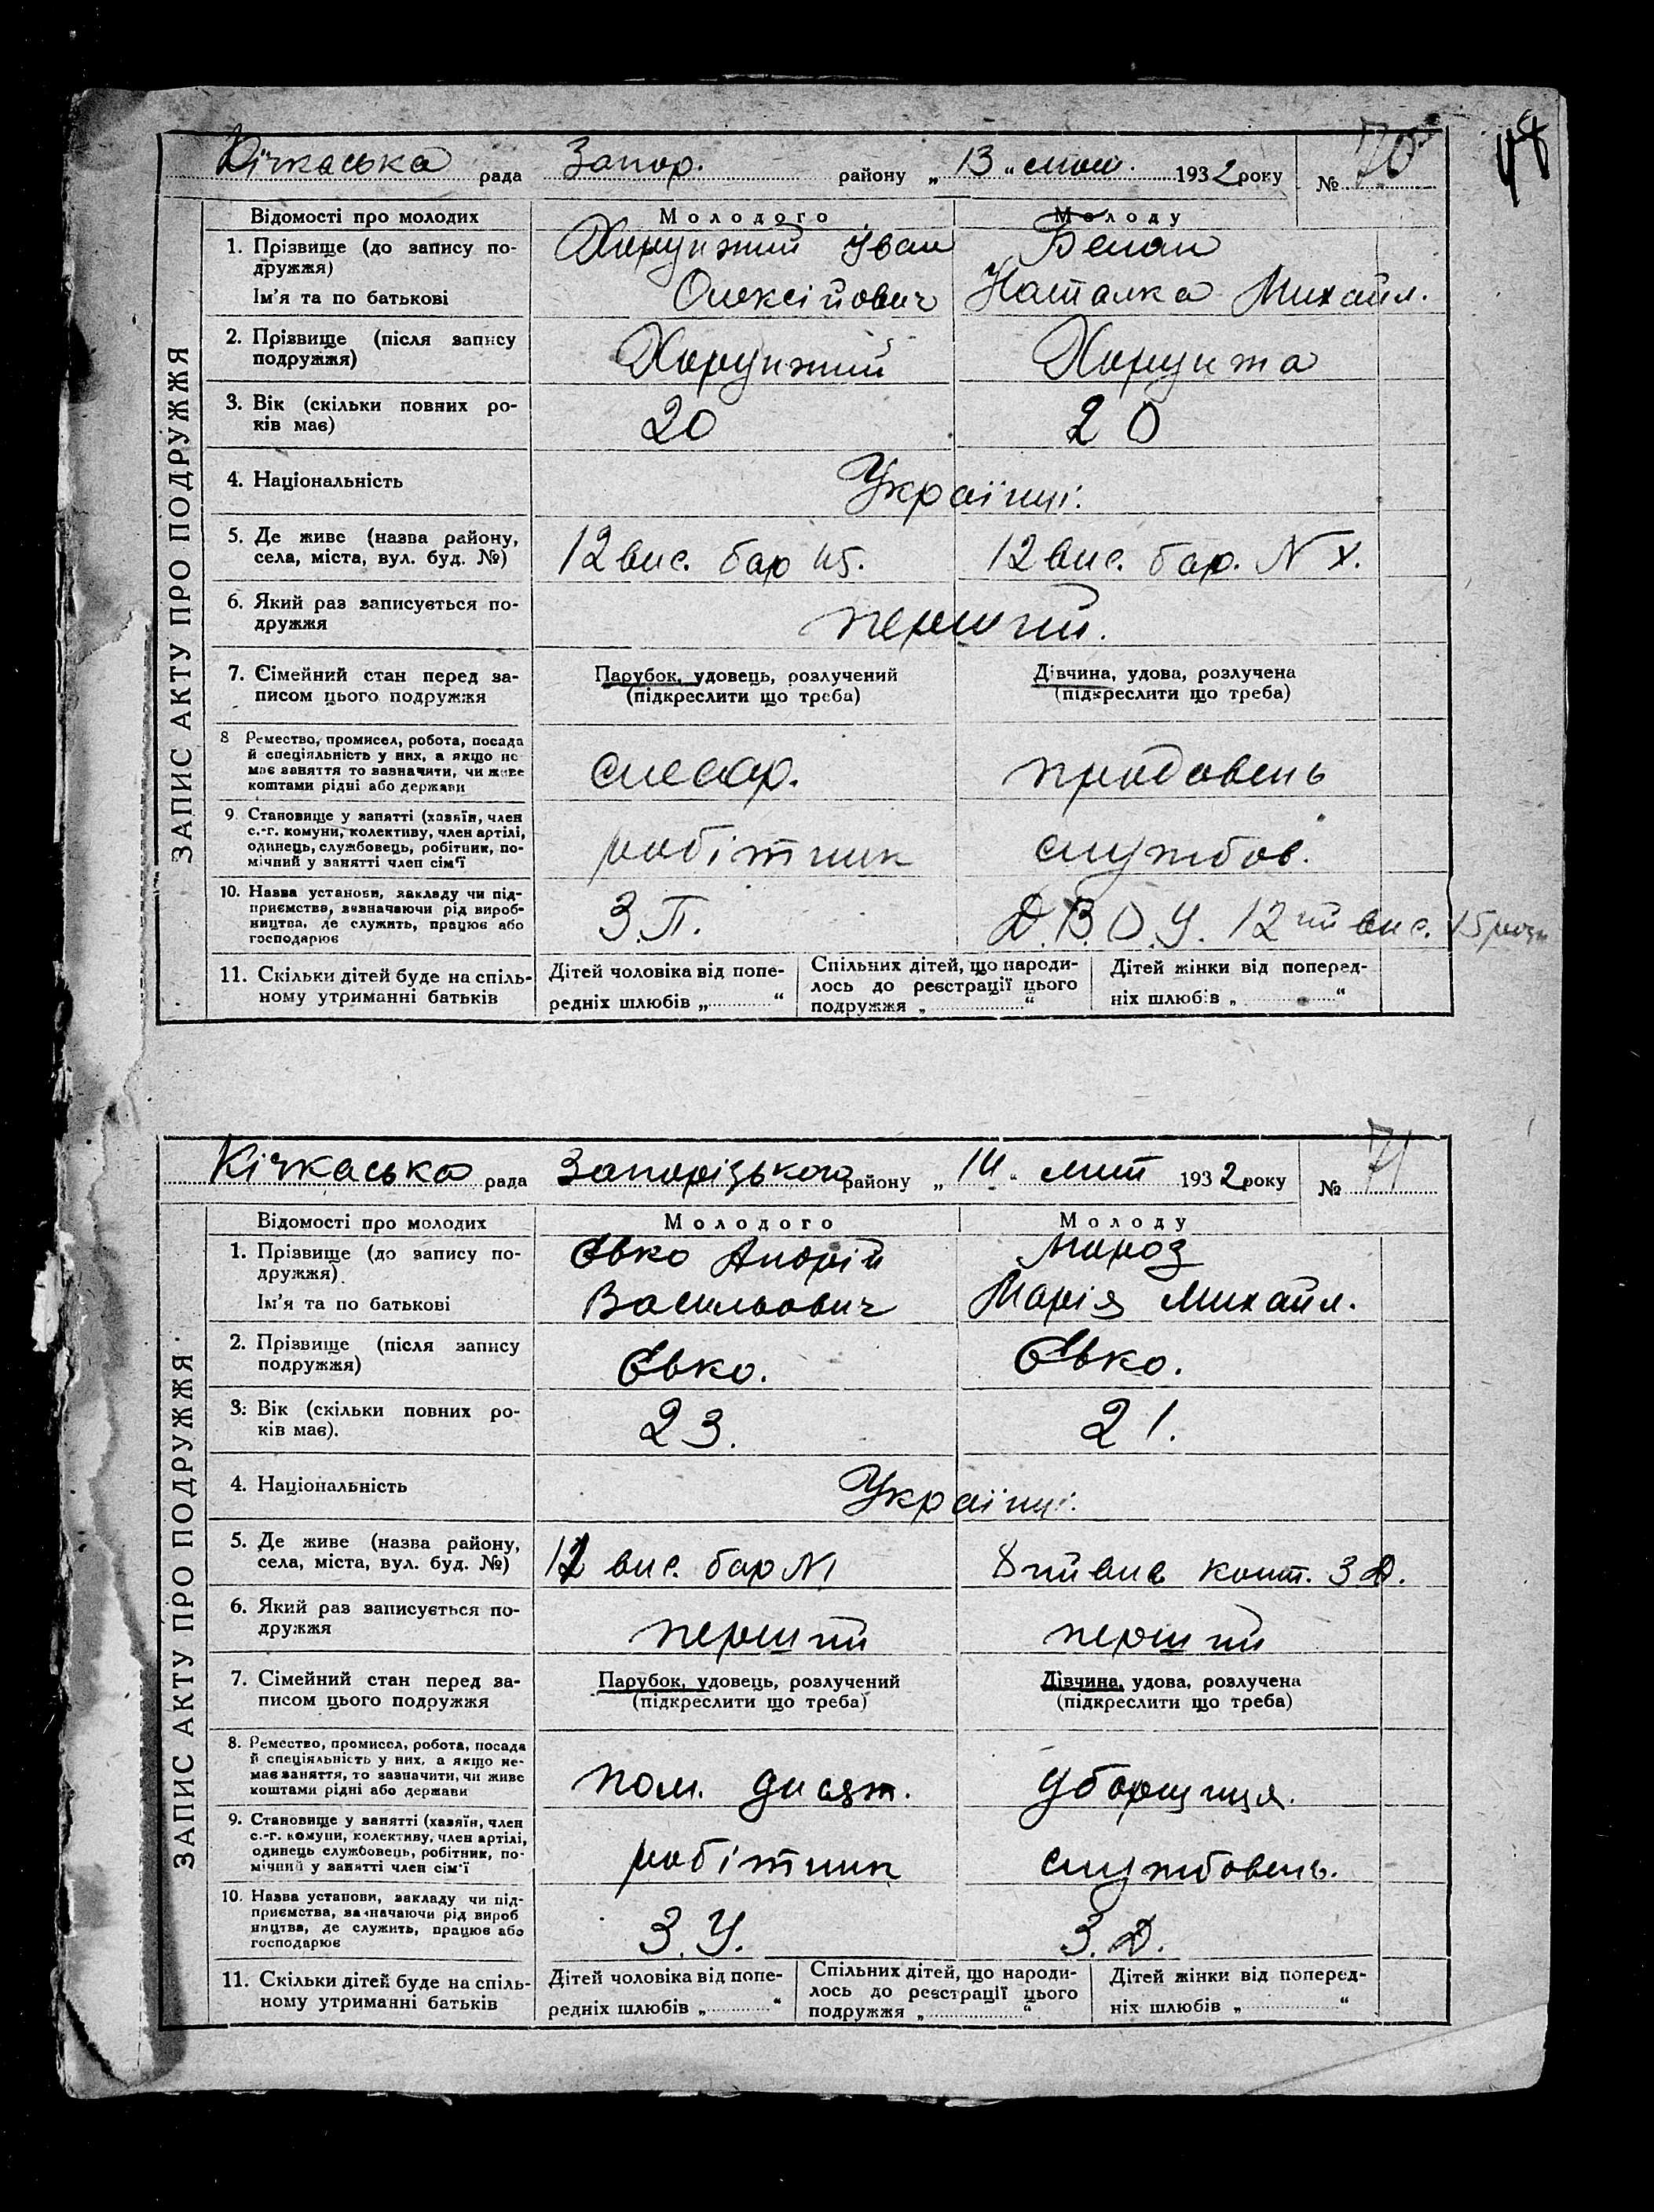 Кічкаська рада Запор. району „13" лют. 1932 року № 70
Відомості про молодих Молодого Молоду
1. Прізвище (до запису по-дружжя) Хорунжий Іван Белан
Ім'я та по батькові Олексійович Наталка Михайл.
2. Прізвище (після запису подружжя) Хорунжий Хорунжа
3. Вік (скільки повних ро-ків має) 20 20
4. Національність Українці.
5. Де живе (назва району, села, міста, вул. буд. №) 12 вис. бар 45. 12 вис. бар. N X.
6. Який раз записується по-дружжя перший.
7. Сімейний стан перед за-писом цього подружжя Парубок, удовець, розлучений (підкреслити що треба) Дівчина, удова, розлучена (підкреслити що треба)
8 Ремество, промисел, робота, посада й спеціяльність у них, а якщо не має заняття то зазначити, чи живе коштами рідні або держави слесар. продавець
9. Становище у занятті (хазяїн, член с.-г. комуни, колективу, член артілі, одинець, службовець, робітник, по-мічний у занятті член сім'ї робітник службов.
10. Назва установи, закладу чи під-приємства, зазначаючи рід вироб-ництва, де служить, працює або господарює З.П. Д.В.О.У. 12 ий вис.
11. Скільки дітей буде на спіль-ному утриманні батьків Дітей чоловіка від попе-редніх шлюбів „ " Спільних дітей, що народи-лось до реєстрації цього подружжя „ " Дітей жінки від поперед-ніх шлюбів „ "
ЗАПИС АКТУ ПРО ПОДРУЖЖЯ
Кічкаська рада Запорізького району „14" лют 1932 року № 71
Відомості про молодих Молодого Молоду
1. Прізвище (до запису по-дружжя) Євко Андрій Мороз
Ім'я та по батькові Васильович Марія Михайл.
2. Прізвище (після запису подружжя) Євко. Євко.
3. Вік (скільки повних ро-ків має). 23. 21.
4. Національність Українці.
5. Де живе (назва району, села, міста, вул. буд. №) 12 вис. бар N1 8 ий вис конт. З.Д.
6. Який раз записується по-дружжя перший перший
7. Сімейний стан перед за-писом цього подружжя Парубок, удовець, розлучений (підкреслити що треба) Дівчина, удова, розлучена (підкреслити що треба)
8. Ремество, промисел, робота, посада й спеціяльність у них, а якщо не-має заняття, то зазначити, чи живе коштами рідні або держави пом. уборщиця.
9. Становище у занятті (хазяїн, член с.-г. комуни, колективу, член артілі, одинець службовець, робітник, по-мічний у занятті член сім'ї робітник службовець.
10. Назва установи, закладу чи під-приємства, зазначаючи рід вироб ництва, де служить, працює або господарює З.У. З.Д.
11. Скільки дітей буде на спіль-ному утриманні батьків Дітей чоловіка від попе-редніх шлюбів „ " Спільних дітей, що народи-лось до реєстрації цього подружжя „ " Дітей жінки від поперед-ніх шлюбів „ "
ЗАПИС АКТУ ПРО ПОДРУЖЖЯ